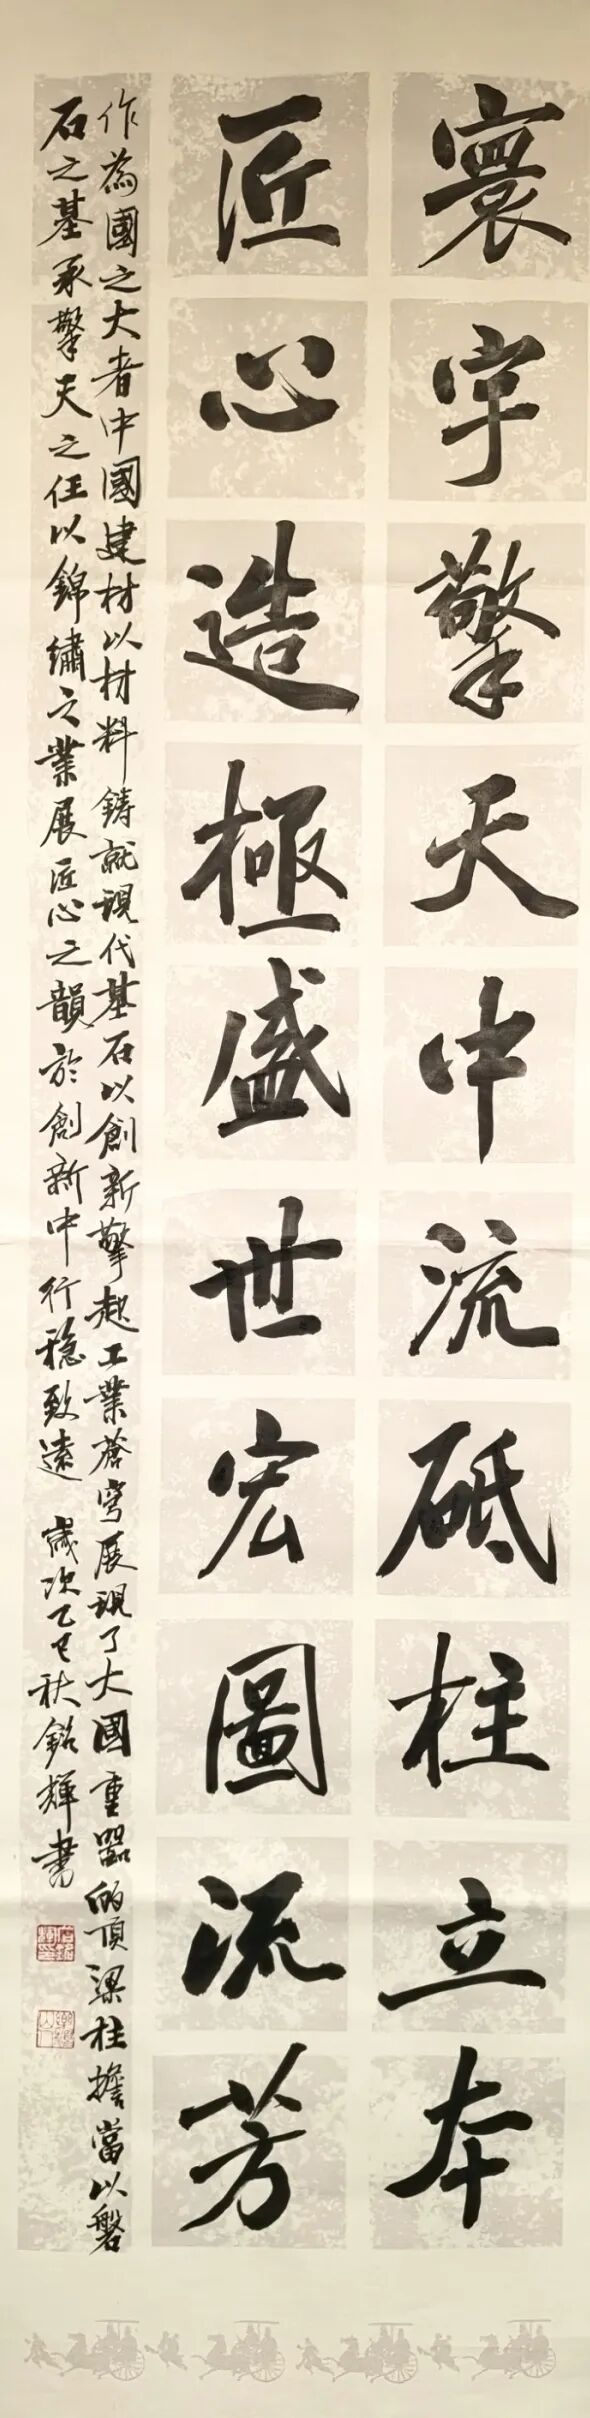 寰宇擎天中流砥柱立本
匠心造極盛世宏圖流芳
作為國之大者中國建材以材料鑄就現代基石以創新擎起工業蒼穹展現了大國重器的頂梁柱擔當以磐
石之基承擎天之任以錦繡之業展匠心之韻於創新中行稳致遠 歲次乙巳秋銘輝書